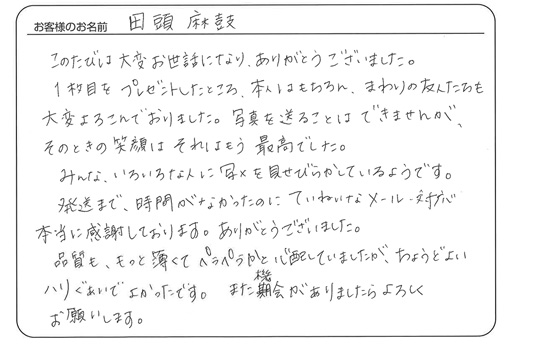 お客様のお名前 田頭 麻鼓
このたびは大変お世話になり、ありがとうございました。
1枚目をプレゼントしたところ、本人はもちろん、まわりの友人たちも
大変よろこんでおりました。写真を送ることはできませんが、
そのときの笑顔はそれはもう最高でした。
みんな、いろいろな人に写メを見せびらかしているようです。
発送まで、時間がなかったのにていねいなメール・対応
本当に感謝しております。ありがとうございました。
品質も、もっと薄くてペラペラかと心配していましたが、ちょうどよい
ハリぐあいでよかったです。また機会がありましたらよろしく
お願いします。